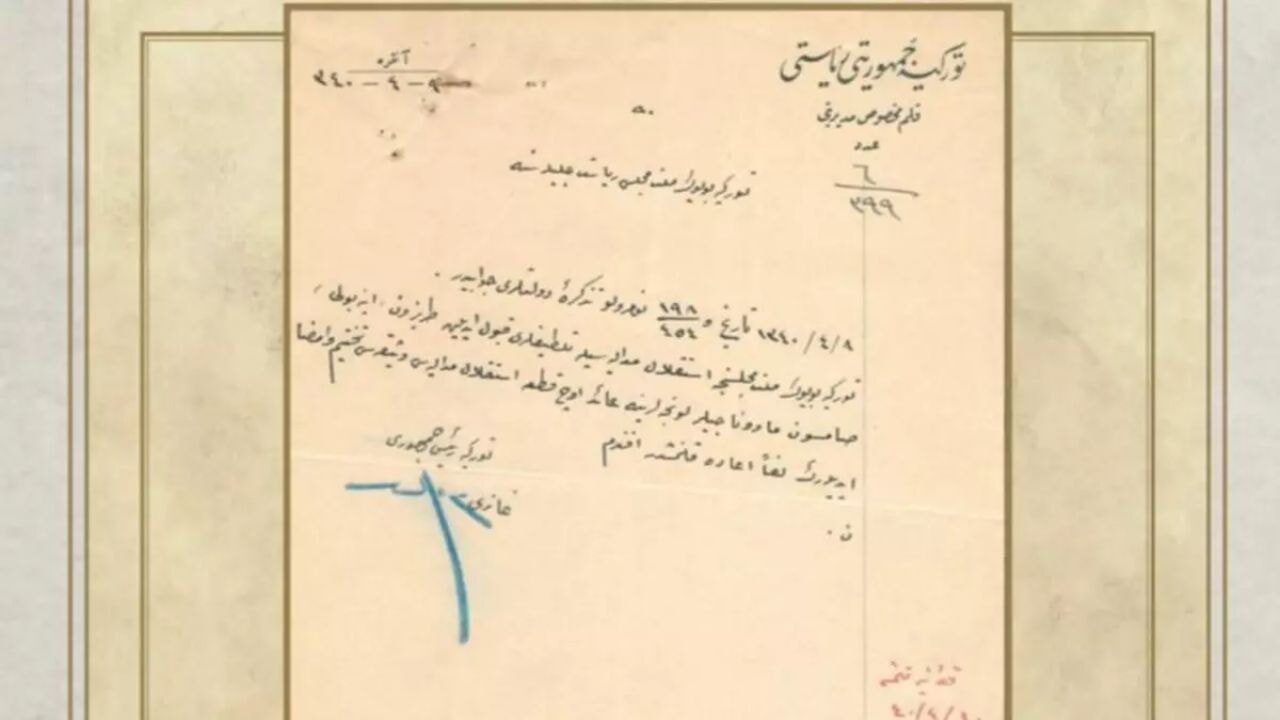 توركیه جمهوریتی ریاستی
قلم مخصوص مدیریتی
عدد
٦
٣٩٩
آنقره
٩ - ٤ - ٣٤٠
توركیه بویوك ملت مجلسی ریاست جلیله‌سنه
٨/٤/١٣٤٠ تاریخ و ١٩٨/٤٥٤ نومرولو تذكرهٔ دولتلری جوابیدر .
توركیه بویوك ملت مجلسنجه استقلال مدالیه‌سیله تلطیفلری قبول ایدیلن طربزون ، اینه‌بولی ،
صامسون ماوناجیلر لونجه‌لرینه عائد اوچ قطعه استقلال مدالیه‌سی وثیقه‌سی تختیم و امضا
ایدیلورك لفاً اعاده قلنمشدر افندم
توركیه رئیس جمهوری
غازی
ن .